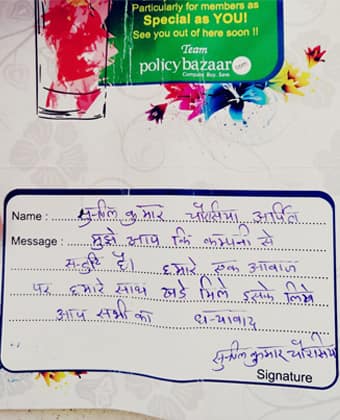 Particularly for members as
Special as YOU!
See you out of here soon !!
Team
policybazaar.com
Compare. Buy. Save.
Name : सुनील कुमार चौरसिया अर्पित
Message : मुझे आप कि कम्पनी से
सन्तुष्टि है। हमारे एक आवाज
पर हमारे साथ खडे मिले इसके लिये
आप सभी का धन्यवाद
सुनील कुमार चौरसिया
Signature